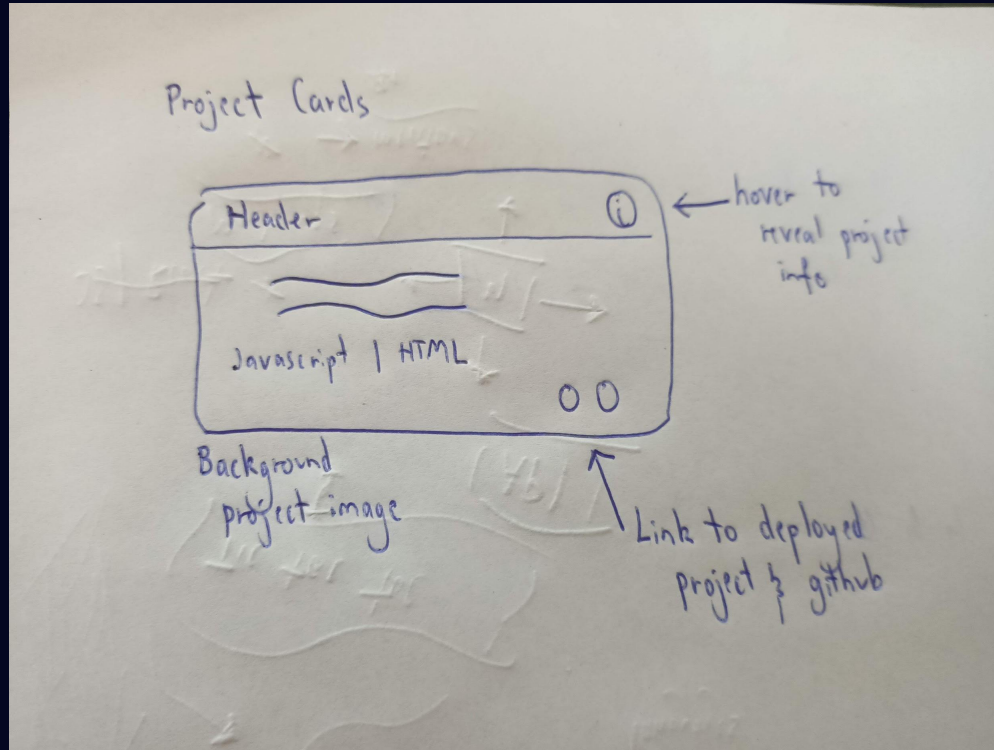 Project Cards
Header
i
hover to
reveal project
info
Javascript | HTML
Background
project image
Link to deployed
project & github